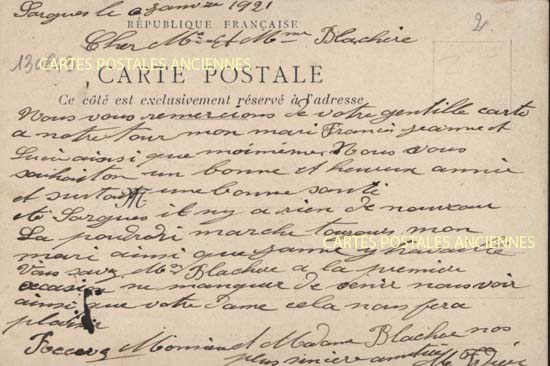 Sorgues le 6 janvier 1921
RÉPUBLIQUE FRANÇAISE
2
Cher Mr et Mme Blachère
CARTES POSTALES ANCIENNES
CARTE POSTALE
Ce côté est exclusivement réservé à l'adresse
Nous vous remercions de votre gentille carte
a notre tour mon mari Francis jeanne et
ainsi que moimême. Nous vous
souhaiton un bonne et heureux année
et surtout une bonne santé
Sorgues il ny a rien de nouveau
La poudrerie marche toujours mon
CARTES POSTALES ANCIENNES
mari ainsi que y travaille
Vous savez Mr Blachère a la première
occasion ne manquer de venir nous voir
ainsi que votre dame cela nous fera
plaisir
Recevez Monsieur et Madame Blachère nos
plus sincère amitiés